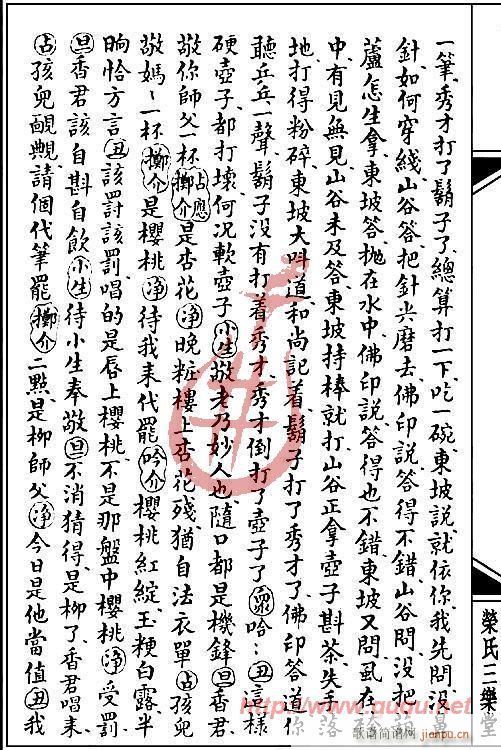 一筆、秀才打了鬍子了、總算打一下、吃一碗、東坡說、就依你、我先問、沒
針如何穿綫、山谷答、把針尖磨去、佛印說、答得不錯、山谷問、沒把
蘆怎生拿、東坡答、拋在水中、佛印說、答得也不錯、東坡又問、虱在
中有見無見、山谷未及答、東坡持棒就打、山谷正拿壺子斟茶、失手
地打得粉碎、東坡大叫道、和尚記着、鬍子打了秀才了、佛印答道、你
聽乒乓一聲、鬍子沒有打着秀才、秀才倒打了壺子了、眾哈哈丑這樣
硬壺子都打壞、何況軟壺子小生敬老乃妙人也、隨口都是機鋒旦香君
敬你師父一杯擲介占應是杏花淨晚粧樓上杏花殘、猶自怯衣單占孩兒
敬媽媽一杯擲介是櫻桃淨待我來代罷吟介櫻桃紅綻、玉粳白露、半
晌恰方言丑該罰該罰、唱的是唇上櫻桃、不是那盤中櫻桃淨受罰
旦香君該自斟自飲小生待小生奉敬旦不消猜得是柳了、香君唱來
占孩兒靦覥請個代筆罷擲介二點是柳師父淨今日是他當值丑我
榮氏三樂
堂
http://www.ququ.com
歌谱简谱网
jianpu.cn